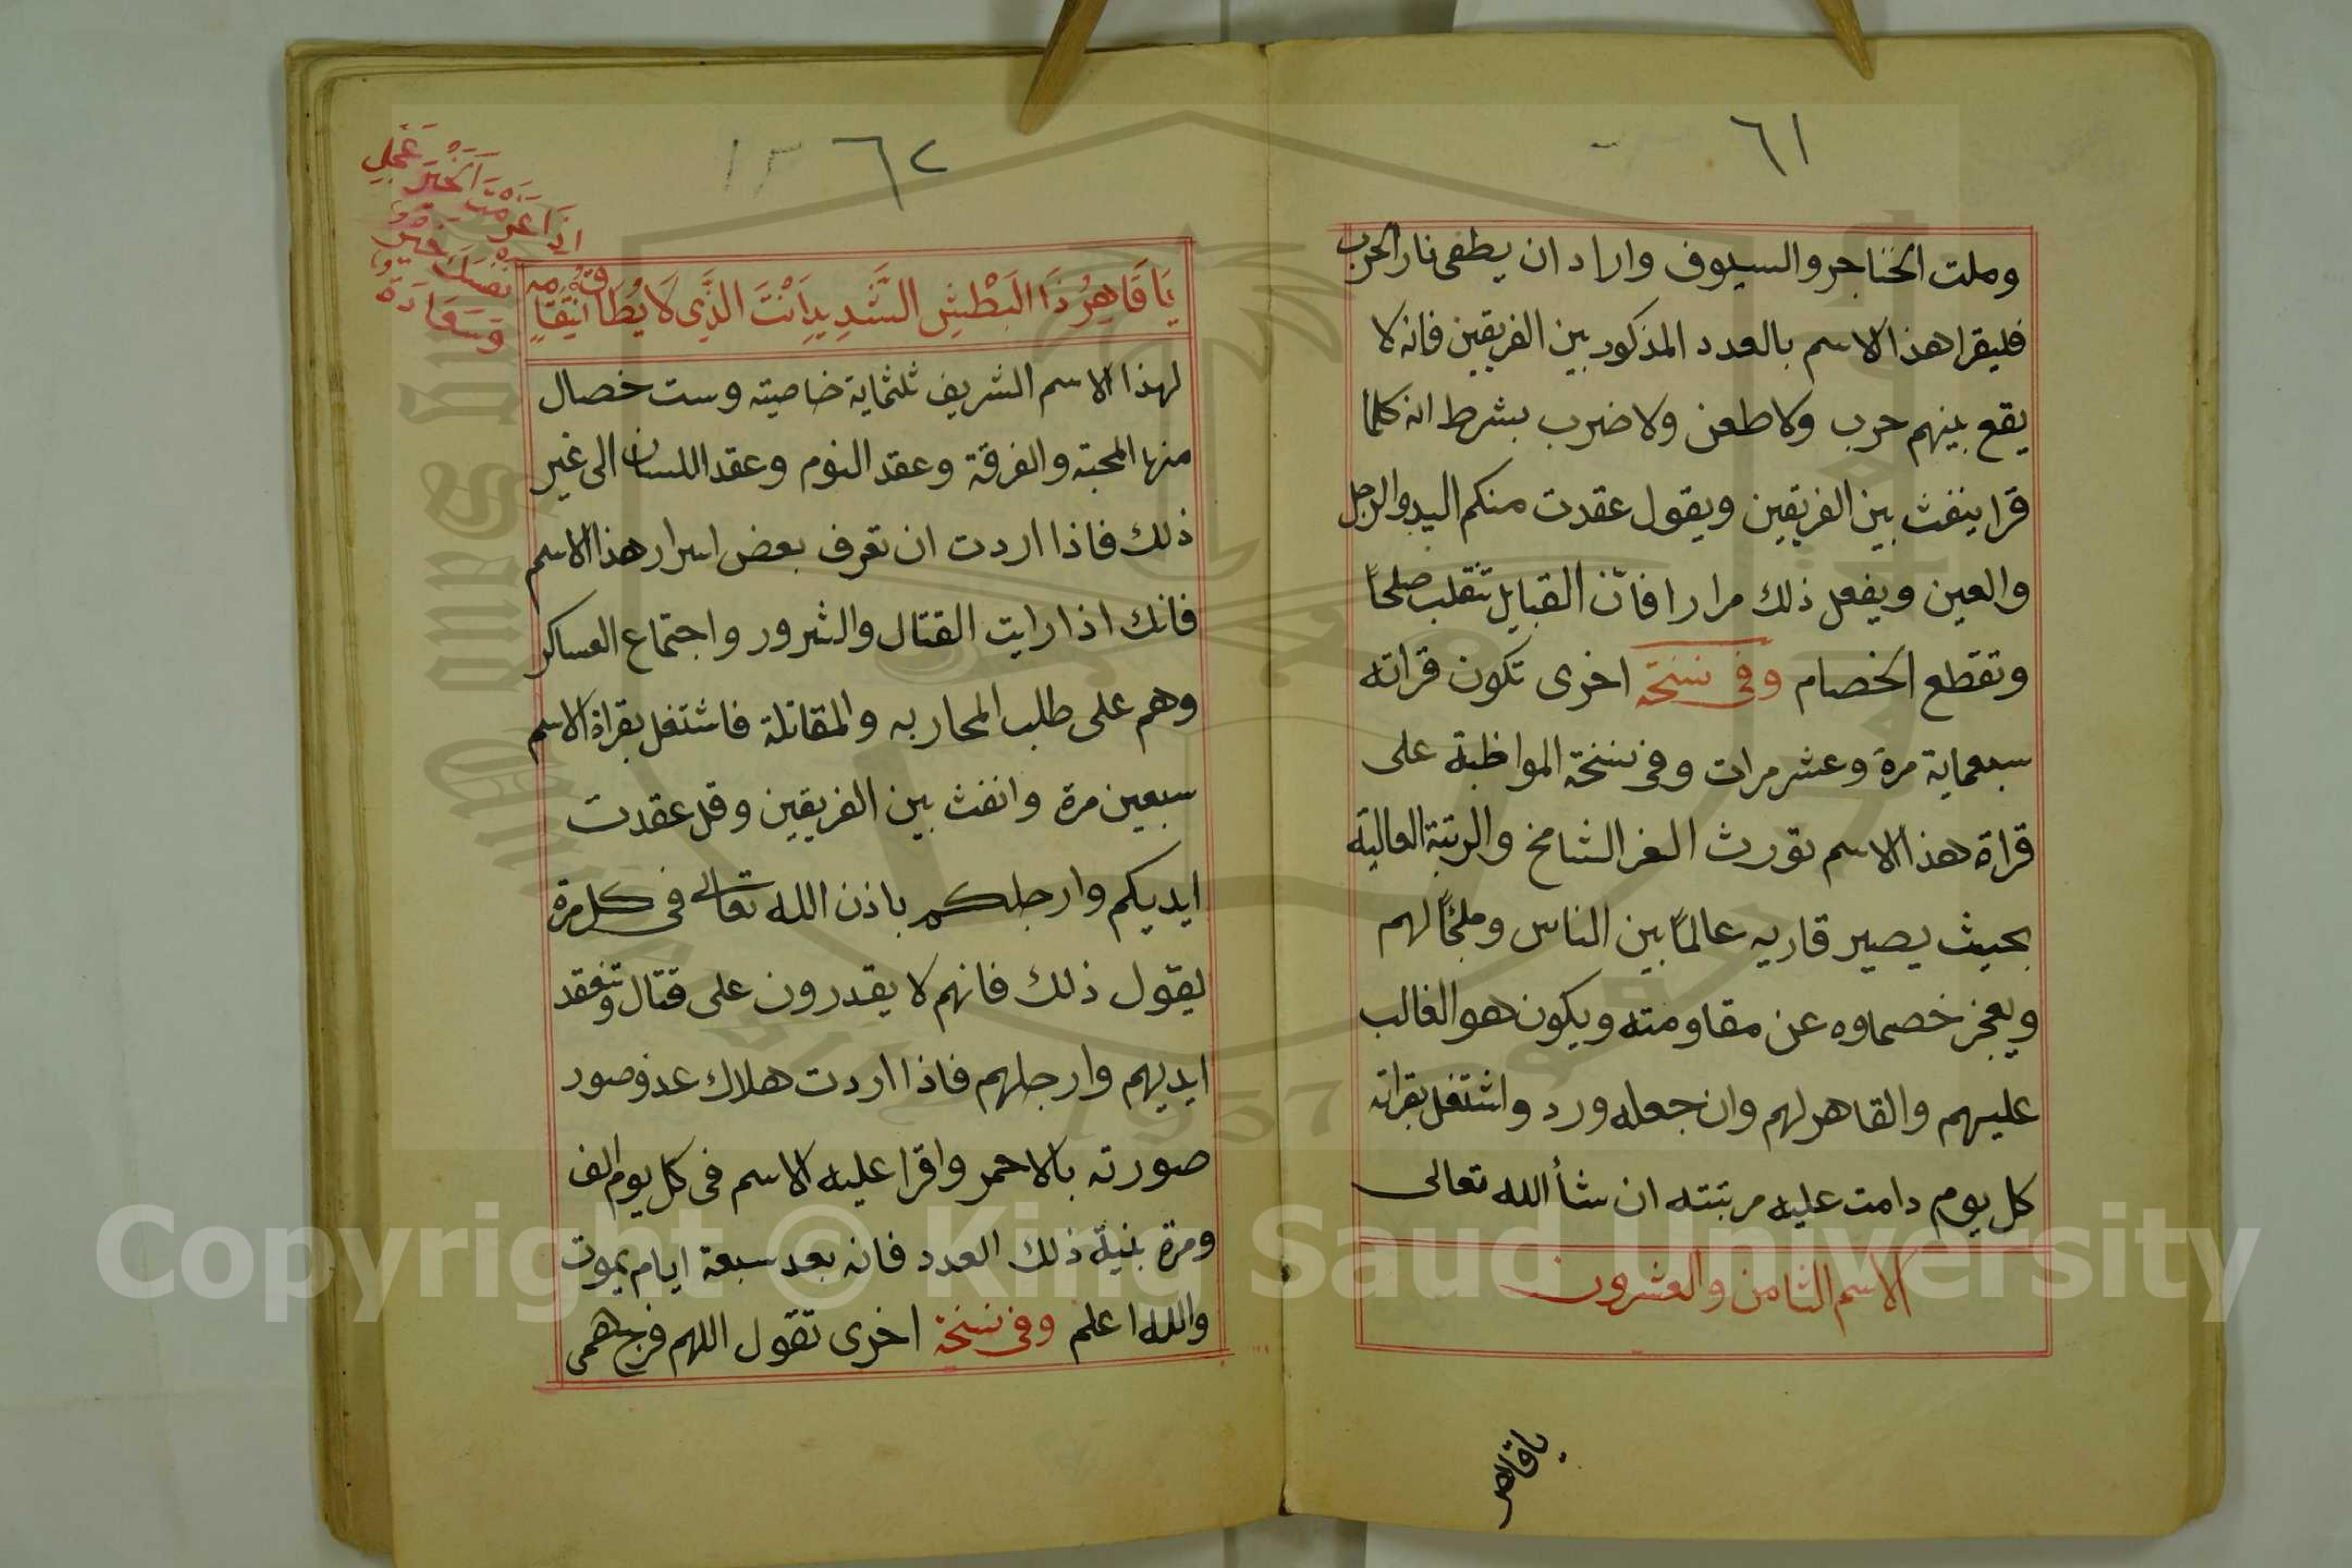 ٦١
وملت الخناجر والسيوف واراد ان يطفى نار الحرب
فليقرا هذا الاسم بالعدد المذكور بين الفريقين فانه لا
يقع بينهم حرب ولا طعن ولا ضرب بشرط انه كلما
قرا ينفث بين الفريقين ويقول عقدت منكم اليد والرجل
والعين ويفعل ذلك مرارا فانّ القبايل تنقلب صلحاً
وتقطع الخصام وفى نسخة اخرى تكون قراته
سبعماية مرة وعشر مرات وفى نسخة المواظبة على
قراة هذا الاسم تورث العز الشامخ والرتبة العالية
بحيث يصير قاريه عالماً بين الناس وملجًا لهم
ويعجز خصماوه عن مقاومته ويكون هو الغالب
عليهم والقاهر لهم وان جعله ورد واشتغل بقراته
كل يوم دامت عليه مرتبته ان شأ الله تعالى
الاسم الثامن والعشرون
ياقاهر
٦٢
١٣
عَجِلِ
اِذَا عَزَمْتَ الْخَيْرَ
نفسك خير
وسعادة
يَا قَاهِرُ ذَا الْبَطْشِ الشَّدِيدِ اَنْتَ الَّذِى لَا يُطَاقُ اِنْتِقَامُهُ
لهذا الاسم الشريف ثلثماية خاصيته وست خصال
منها المحبته والفرقة وعقد النوم وعقد اللسان الى غير
ذلك فاذا اردت ان تعرف بعض اسرار هذا الاسم
فانك اذا رايت القتال والشرور واجتماع العساكر
وهم على طلب المحاربه والمقاتلة فاشتغل بقراة الاسم
سبعين مرة وانفث بين الفريقين وقل عقدت
ايديكم وارجلكم باذن الله تعالى فى كل مرة
يقول ذلك فانهم لا يقدرون على قتال وتنعقد
ايديهم وارجلهم فاذا اردت هلاك عدو صور
صورته بالاحمر واقرا عليه الاسم فى كل يوم الف
ومرة بنيّة ذلك العدد فانه بعد سبعة ايام يموت
والله اعلم وفى نسخة اخرى تقول اللهم فرج همى
Copyright © King Saud University
1957